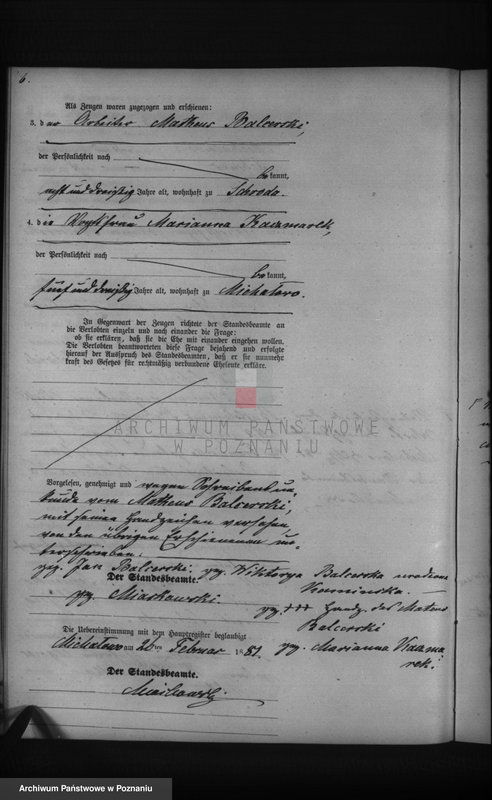 6.
Als Zeugen waren zugezogen und erschienen:
3. der Arbeiter Matheus Balcerski,
der Persönlichkeit nach
bekannt,
acht und dreißig Jahre alt, wohnhaft zu Schroda.
4. die Vogtfrau Marianna Kaczmarek,
der Persönlichkeit nach
bekannt,
fünf und dreißig Jahre alt, wohnhaft zu Michalowo.
In Gegenwart der Zeugen richtete der Standesbeamte an
die Verlobten einzeln und nach einander die Frage:
ob sie erklären, daß sie die Ehe mit einander eingehen wollen.
Die Verlobten beantworteten diese Frage bejahend und erfolgte
hierauf der Ausspruch des Standesbeamten, daß er sie nunmehr
kraft des Gesetzes für rechtmäßig verbundene Eheleute erkläre.
ARCHIWUM PAŃSTWOWE
W POZNANIU
Vorgelesen, genehmigt und wegen Schreibensun-
kunde vom Matheus Balcerski,
mit seinem Handzeichen versehen,
von den übrigen Erschienenen un-
terschrieben.
gez. Jan Balcerski. gez. Wiktorya Balcerska
Der Standesbeamte.
gez. Miaskowski.
gez. +++ Handz. des Mateus
Balcerski
Die Uebereinstimmung mit dem Hauptregister beglaubigt
gez. Marianna Kaczma
rek.
Michalowo am 26ten Februar 1881.
Der Standesbeamte.
Archiwum Państwowe w Poznaniu